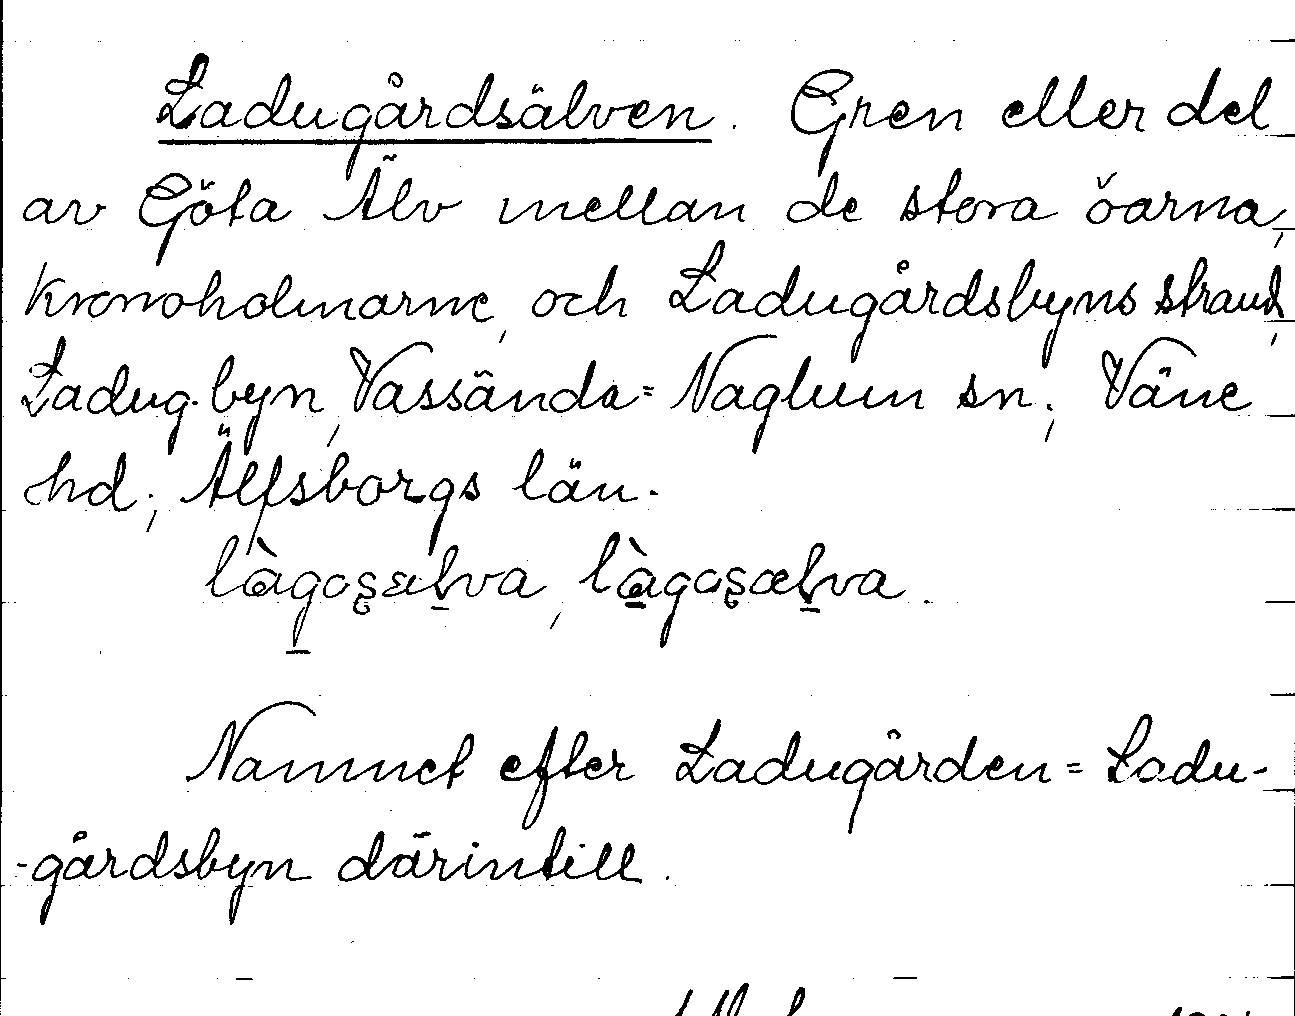 Ladugårdsälven. Gren eller del
av Göta Älv mellan de stora öarna,
Kronoholmarne, och Ladugårdsbyns strand,
Ladug.byn, Vassända=Naglum sn; Väne
hd; Älfsborgs län.
Namnet efter Ladugården=Ladu-
-gårdsbyn därintill.